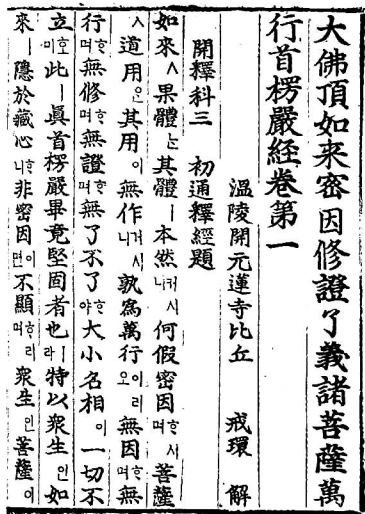 大佛頂如来密因修證了義諸菩薩萬
行首楞嚴經卷第一
溫陵開元蓮寺比丘 戒環 解
開釋科三 初通釋經題
如來ㅅ果體는其體ㅣ本然커시니何假密因ᄒᆞ시며菩薩
ㅅ道用은其用이無作거시니孰為萬行이리오無因ᄒᆞ며無
行ᄒᆞ며無修ᄒᆞ며無證ᄒᆞ며無了不了ᄒᆞ야大小名相이一切不
立호미此ㅣ眞首楞嚴畢竟堅固者也ㅣ라特以衆生인如
來ㅣ隱於藏心ᄒᆞ니非密因이면不顯ᄒᆞ리며衆生인菩薩이